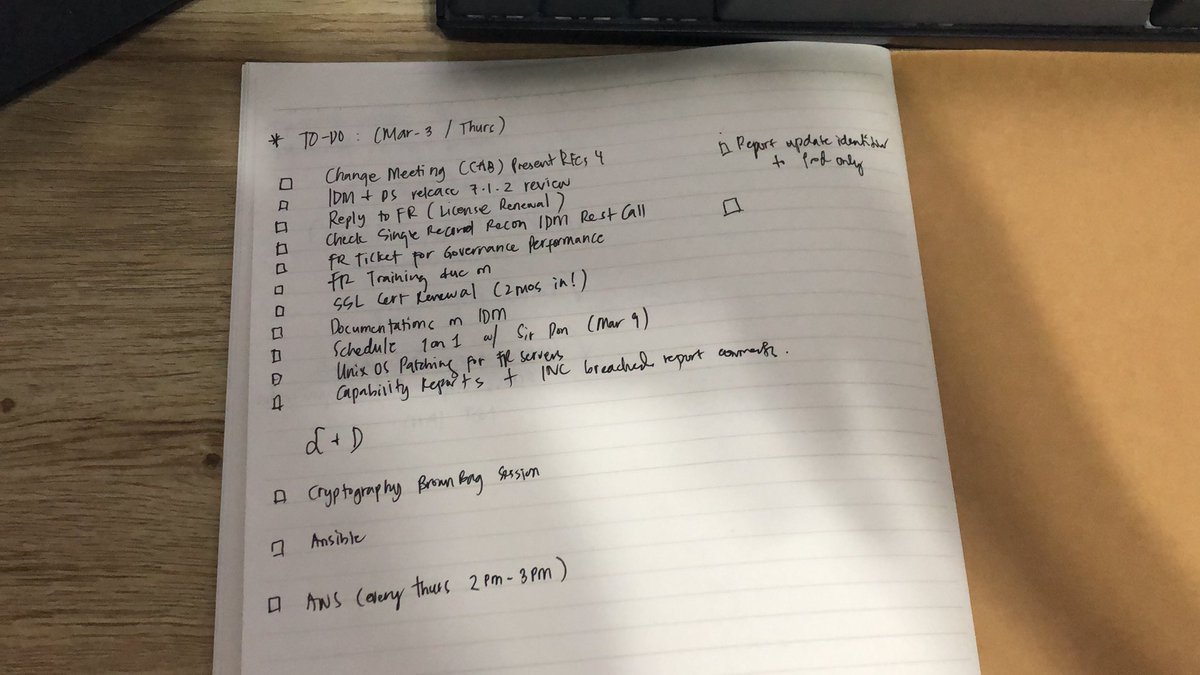 * TO-DO : (Mar-3 / Thurs)
Change Meeting (CAB) Present RFCs 4
IDM + DS release 7.1.2 review
Reply to FR (License Renewal)
Check Single Record Recon IDM Rest Call
FR Ticket for Governance Performance
FR Training due on
SSL Cert Renewal (2mos in!)
Documentations on IDM
Schedule 1on1 w/ Sir Don (Mar 9)
Unix OS Patching for FR servers
Capability Reports + INC breached report
L + D
Cryptography BrownBag Session
Ansible
AWS (every thurs 2pm-3pm)
Report update identifier
to Prod only